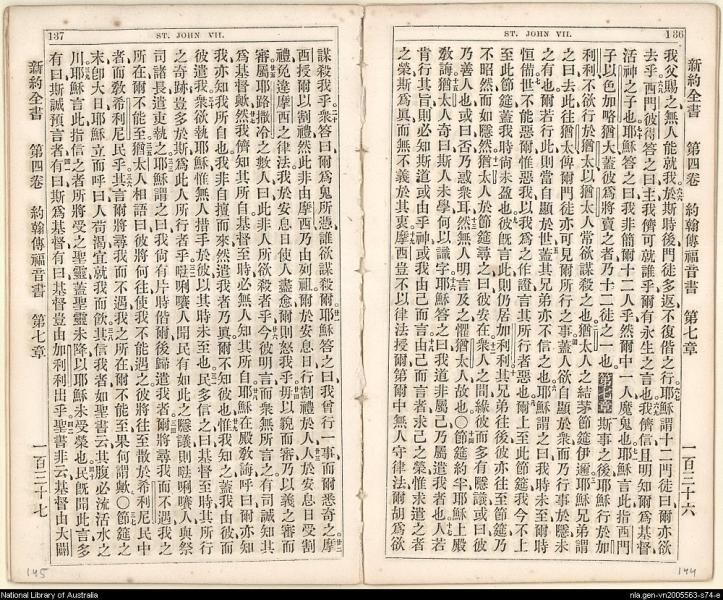 136
ST. JOHN VII.
新約全書 第四卷 約翰傳福音書 第七章 一百三十六
我父賜之無人能就我於斯時後門徒多返不復偕之行耶穌謂十二門徒曰爾亦欲
去乎西門彼得答之曰主我儕可就誰乎爾有永生之言也我儕信且明知爾爲基督
活神之子也耶穌答之曰我非簡爾十二人乎然爾中一人魔鬼也耶穌言此指西門
子以色加略猶大蓋彼爲將賣之者乃十二徒之一也 第七章 斯事之後耶穌行於加
利利不欲行於猶太以猶太人常欲謀殺之也猶太人之結茅節筵伊邇耶穌兄弟謂
之曰去此往猶太俾爾門徒亦可見爾所行之事蓋人欲自顯於衆而乃行事於隱未
之有也爾若行此則當自顯於世蓋其兄弟亦不信之也耶穌謂之曰我時未至爾時
恒備世不能惡爾惟惡我以我爲之作證言其所行者惡也爾上至此節筵我今不上
至此節筵蓋我時尚未盈也彼既言此則仍居加利利其兄弟往後彼亦往至節筵乃
不昭然而如隱然猶太人於節筵尋之曰彼安在衆人之間緣彼而多有隱議或曰彼
乃善人也或曰否乃惑衆耳然無人明言及之懼猶太人故也〇節筵約半耶穌上殿
敎誨猶太人奇曰斯人未學何以識字耶穌答之曰我道非屬己乃屬遣我者也人若
肯行其旨則必知斯道或由乎神或我由己而言由己而言者求己之榮惟求遣之者
之榮斯爲真而無不義於其衷摩西豈不以律法授爾第爾中無人守律法爾胡爲欲
137
ST. JOHN VII.
謀殺我乎衆答曰爾爲鬼所憑誰欲謀殺爾耶穌答之曰我曾行一事而爾悉奇之摩
西授爾以割禮然此非由摩西乃由列祖爾於安息日行割禮於人人於安息日受割
禮免違摩西之律法我於安息日使人盡愈爾則怒我乎毋以貌而審乃以義之審而
審屬耶路撒冷之數人曰此非人所欲殺者乎今彼明言而衆無所言之有司誠知其
爲基督歟然我儕知其所自基督至時必無人知其所自耶穌在殿敎誨呼曰爾亦知
我亦知我所自也我非自擅而來然遣我者乃真爾不知彼也惟我知之蓋我由彼而
彼遣我衆欲執耶穌惟無人措手於彼以其時未至也民多信之曰基督至時其所行
之奇跡豈多於斯爲此人所行者乎唎人聞民有如此之隱議則唎人與祭
司諸長遣吏執之耶穌謂之曰我尚有片時偕爾後歸遣我者爾將尋我而不遇我之
所在爾不能至猶太人相語曰彼將何往使我不能遇之彼將往至散於希利尼民中
者而敎希利尼民乎其言爾將尋我而不遇我之所在爾不能至果何謂歟〇節筵之
末卽大日耶穌立而呼曰人苟渴宜就我而飲其信我者如聖書云其腹必流活水之
川耶穌言此指信之者所將受之聖靈蓋聖靈未降以耶穌未受榮也民既聞此言多
有曰斯誠預言者有曰斯爲基督有曰基督豈由加利利出乎聖書非云基督由大闢
新約全書 第四卷 約翰傳福音書 第七章 一百三十七
144
145
National Library of Australia
nla.gen-vn2005563-s74-e